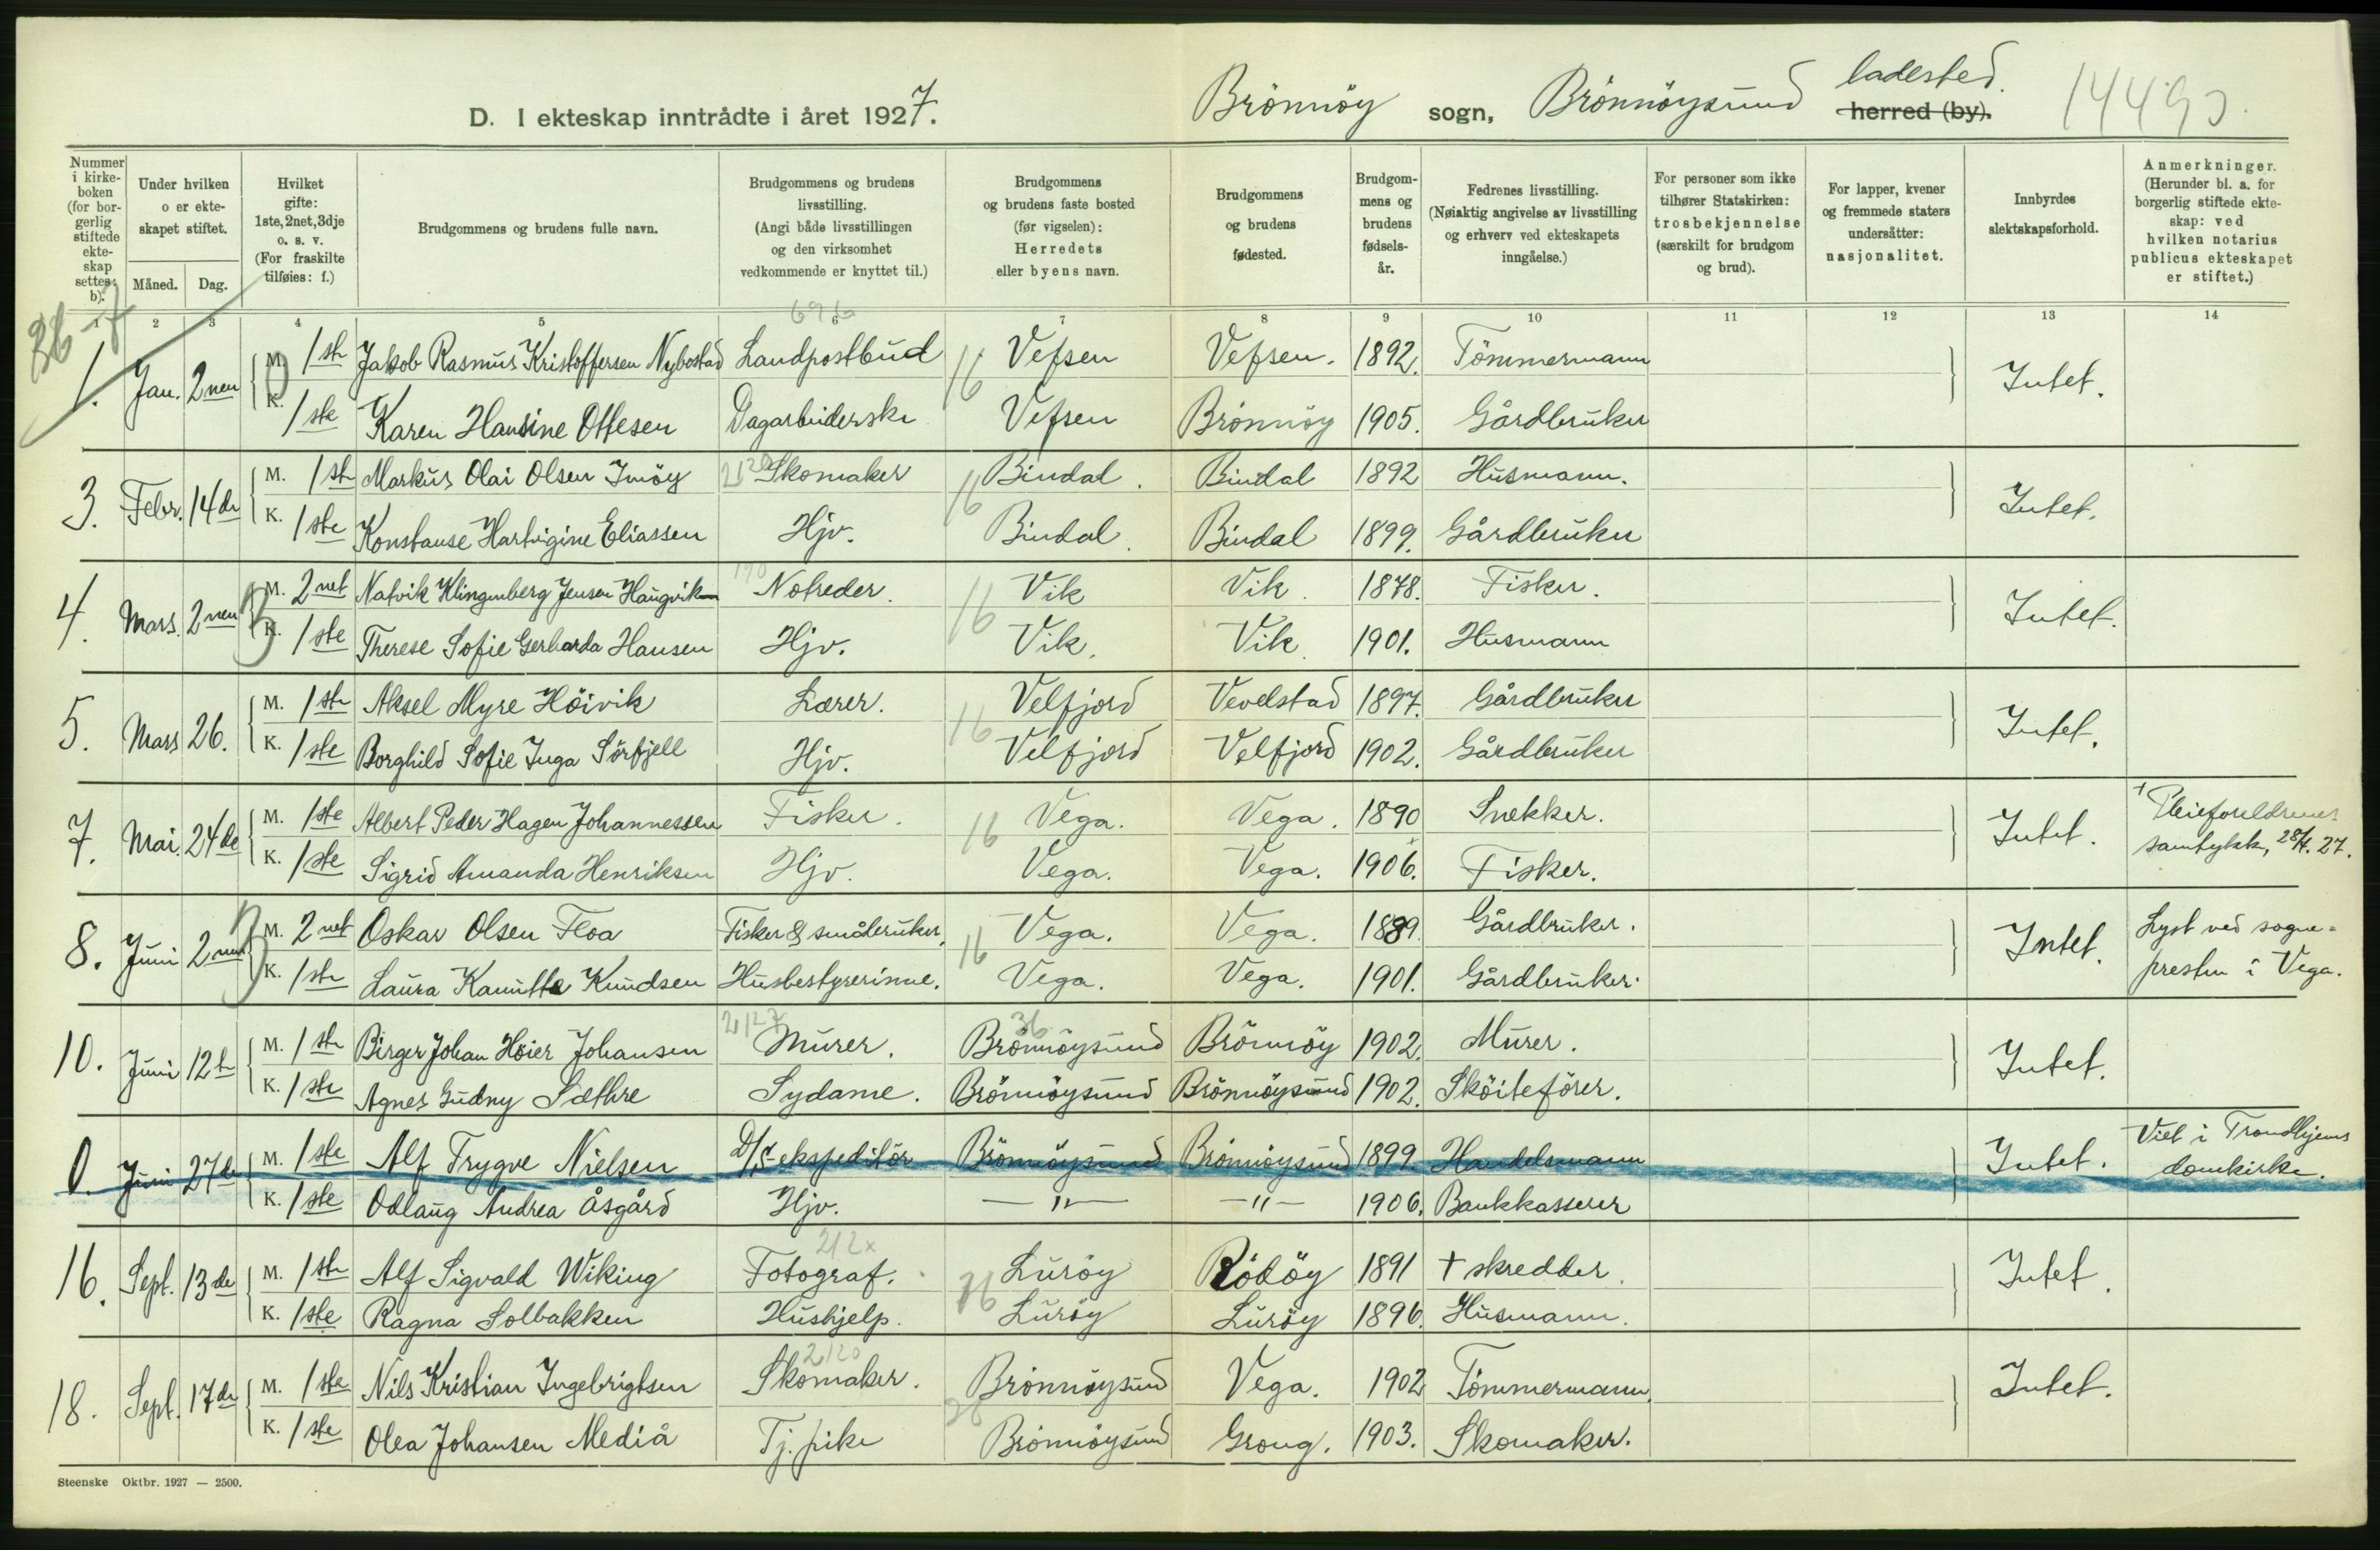 D. I ekteskap inntrådte i året 1927.
Brönnöy sogn, Brönnöysund ladested. herred (by).
Nummer i kirkeboken (for borgerlig stiftede ekteskap settes: b).
Under hvilken o er ekteskapet stiftet.
Måned. Dag.
Hvilket gifte: 1ste, 2net, 3dje o. s. v. (For fraskilte tilføies: f.)
Brudgommens og brudens fulle navn.
Brudgommens og brudens livsstilling. (Angi både livsstillingen og den virksomhet vedkommende er knyttet til.)
Brudgommens og brudens faste bosted (før vigselen): Herredets eller byens navn.
Brudgommens og brudens fødested.
Brudgommens og brudens fødselsår.
Fedrenes livsstilling. (Nøiaktig angivelse av livsstilling og erhverv ved ekteskapets inngåelse.)
For personer som ikke tilhører Statskirken: trosbekjennelse (særskilt for brudgom og brud).
For lapper, kvener og fremmede staters undersåtter: nasjonalitet.
Innbyrdes slektskapsforhold.
Anmerkninger. (Herunder bl. a. for borgerlig stiftede ekteskap: ved hvilken notarius publicus ekteskapet er stiftet.)
1 2 3 4 5 6 7 8 9 10 11 12 13 14
1. Jan. 2nen M. 1ste Jakob Rasmus Kristoffersen Nybostad Landpostbud 16 Vefsen Vefsen. 1892. Tömmermann Intet.
K. 1ste Karen Hansine Ottesen Dagarbeiderske Vefsen Brönnöy 1905. Gårdbruker
3. Febr. 14de M. 1ste Markus Olai Olsen Imöy Skomaker 16 Bindal. Bindal 1892 Husmann. Intet.
K. 1ste Konstanse Hartvigine Eliassen Hjv. Bindal. Bindal 1899. Gårdbruker
4. Mars. 2nen M. 2net Natvik Klingenberg Jensen Haugvik Notreder. 16 Vik Vik. 1878. Fisker. Intet.
K. 1ste Therese Sofie Gerharda Hansen Hjv. Vik. Vik. 1901. Husmann
5. Mars 26. M. 1ste Aksel Myre Höivik Lærer. 16 Velfjord Vevelstad 1897. Gårdbruker Intet.
K. 1ste Borghild Sofie Inga Sörfjell Hjv. Velfjord Velfjord 1902. Gårdbruker
7. Mai. 24de M. 1ste Albert Peder Hagen Johannessen Fisker. 16 Vega. Vega. 1890 Snekker. Intet. + Pleieforeldrenes
K. 1ste Sigrid Amanda Henriksen Hjv. Vega. Vega. 1906. Fisker. samtykke, 28/4. 27.
8. Juni 2nen M. 2net Oskar Olsen Floa Fisker & småbruker, 16 Vega. Vega. 1889. Gårdbruker. Intet. Lyst ved sogne=
K. 1ste Laura Kanutte Knudsen Husbestyrerinne. Vega. Vega. 1901. Gårdbruker. presten i Vega.
10. Juni 12te M. 1ste Birger Johan Höier Johansen Murer. 36 Brönnöysund Brönnöy 1902. Murer. Intet.
K. 1ste Agnes Gudny Sæthre Sydame. Brönnöysund Brönnöysund 1902. Sköiteförer.
0. Juni 27de M. 1ste Alf Trygve Nielsen D/S-ekspeditör Brönnöysund Brönnöysund 1899. Handelsmann Intet. Viet i Trondhjems
K. 1ste Odlaug Andrea Åsgård Hjv. —"— —"— 1906. Bankkasserer domkirke.
16. Sept. 13de M. 1ste Alf Sigvald Wiking Fotograf. Luröy Rödöy 1891 + skredder. Intet.
K. 1ste Ragna Solbakken Hushjelp. Luröy Luröy 1896. Husmann.
18. Sept. 17de M. 1ste Nils Kristian Ingebrigtsen Skomaker. Brönnöysund Vega. 1902 Tömmermann. Intet.
K. 1ste Olea Johansen Mediå Tj. pike Brönnöysund Grong. 1903. Skomaker.
Steenske Oktbr. 1927 — 2500.